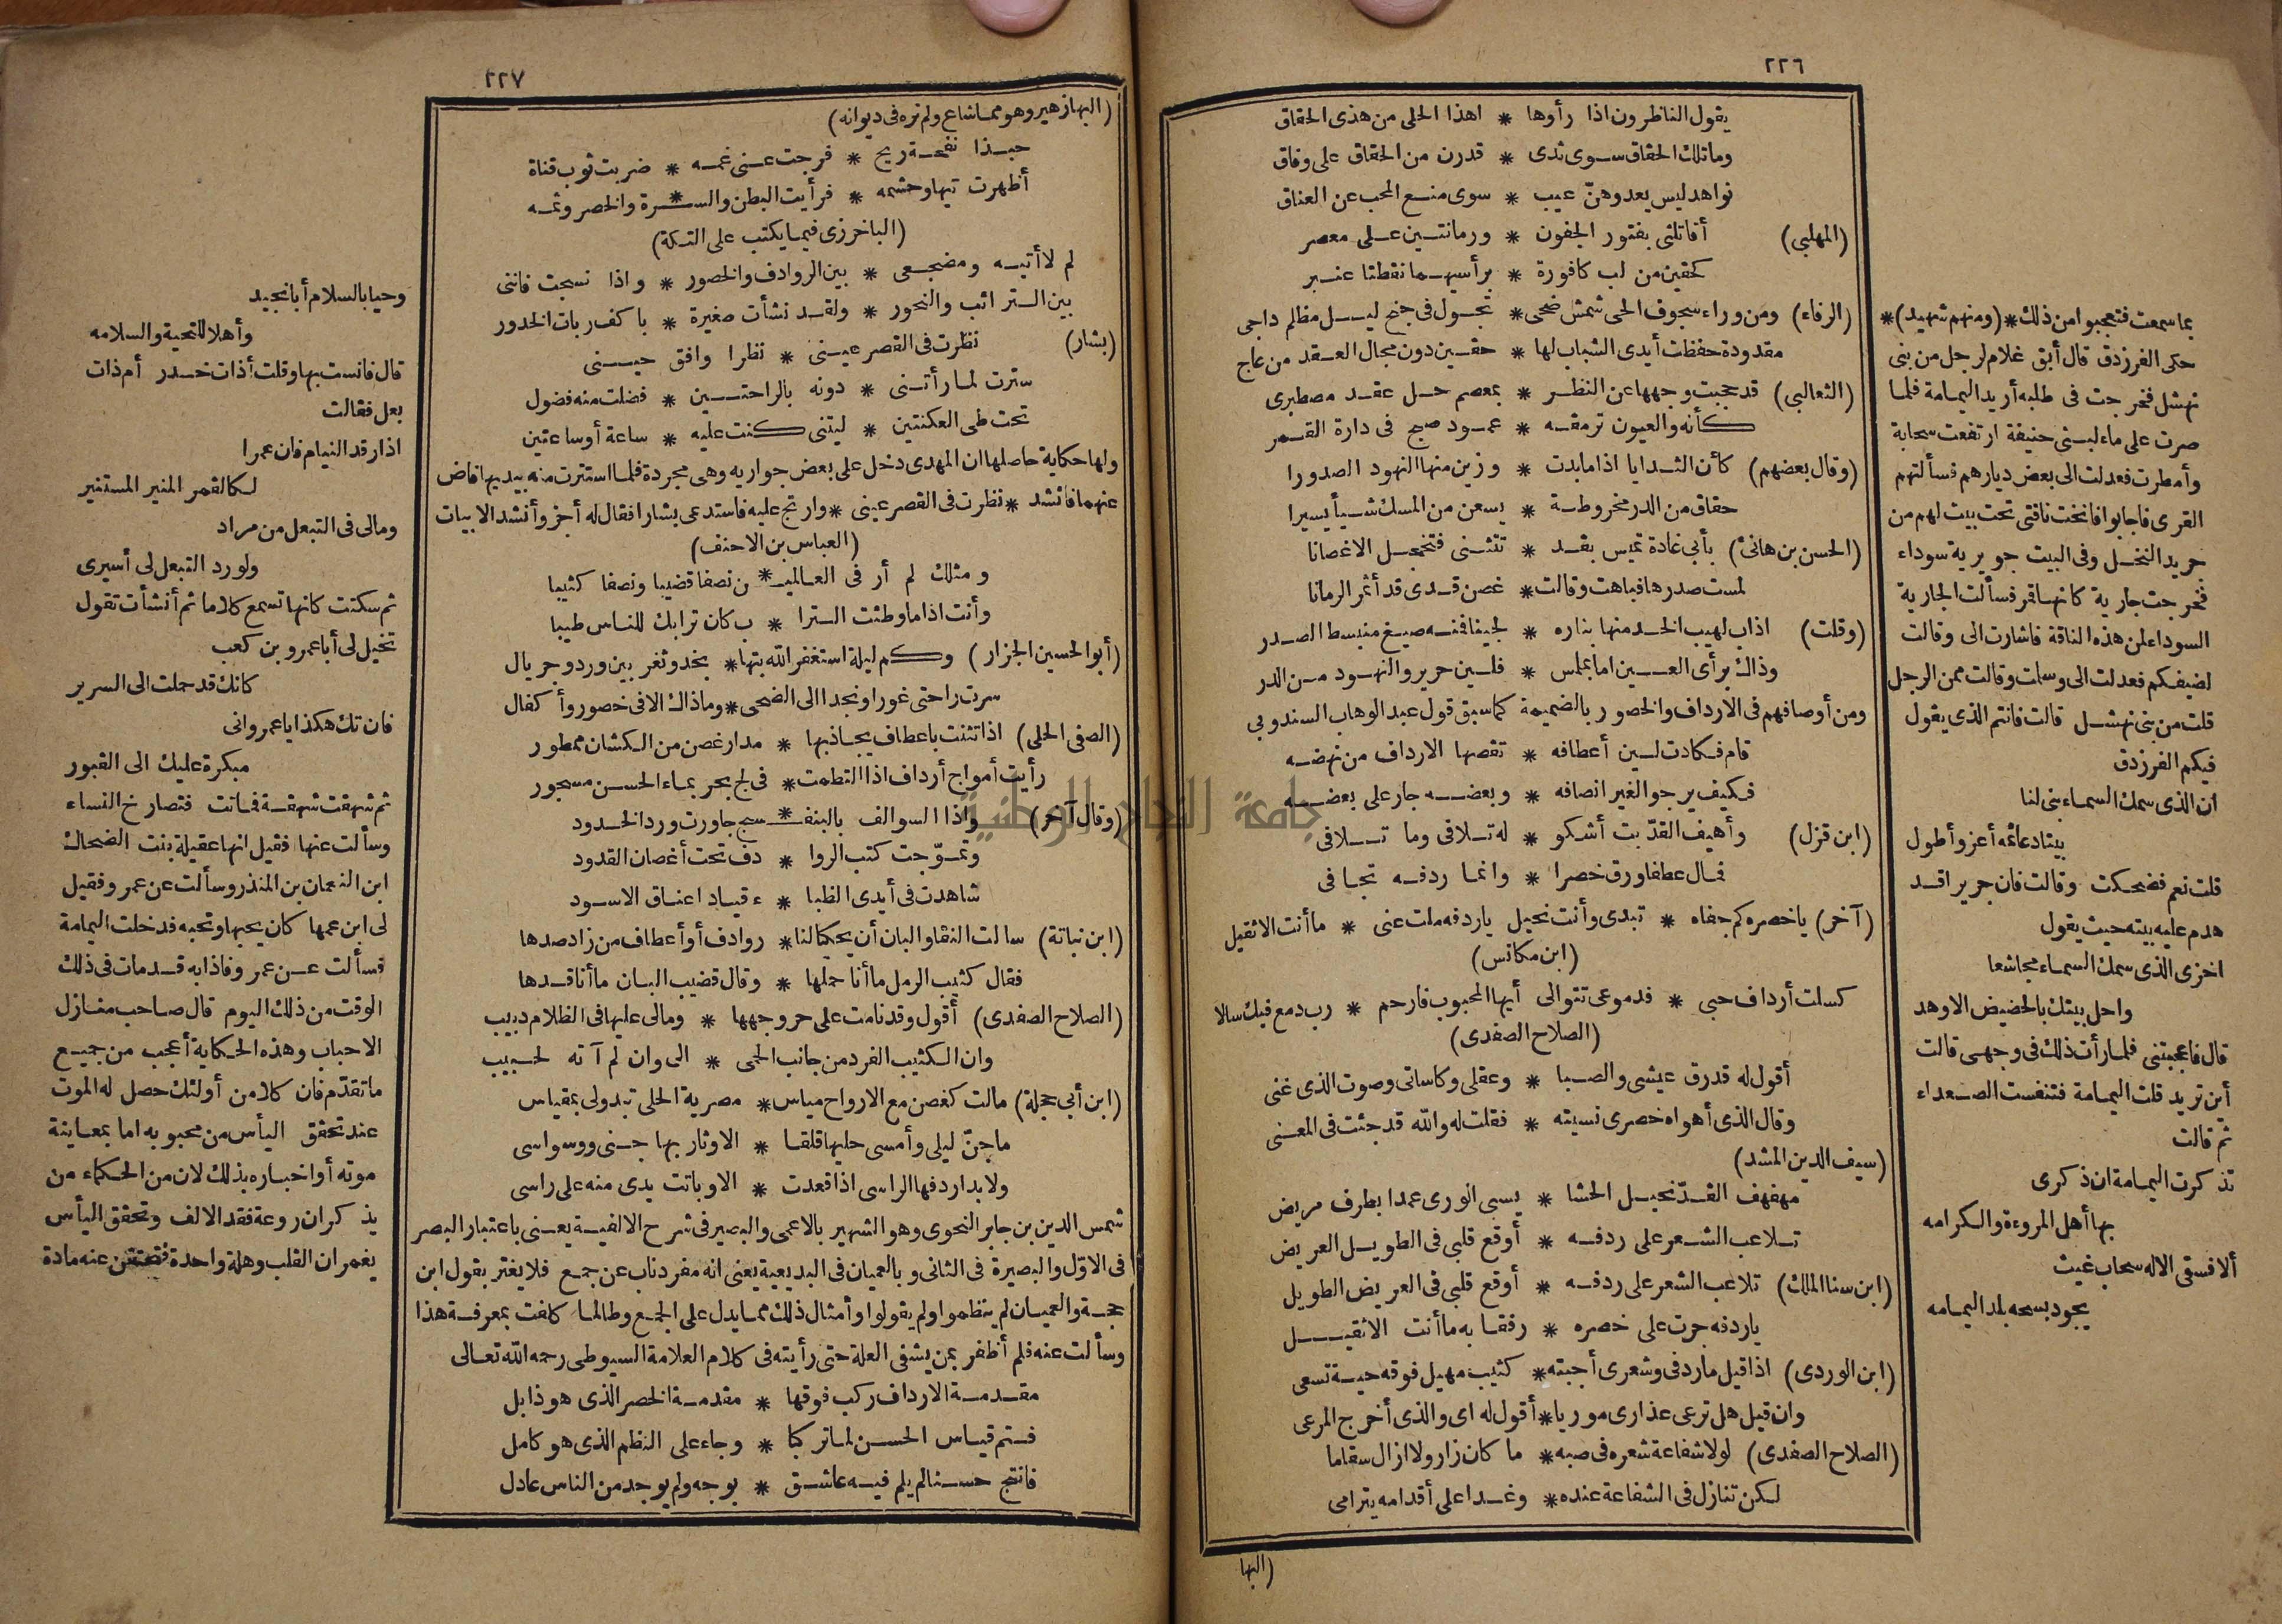 ٢٢٦
يقول الناظرون اذا رأوها * اهذا الحلى من هذى الحقاق
وماتلك الحقاق سوى ثدى * قدرن من الحقاق على وفاق
نواهد ليس يعدوهنّ عيب * سوى منع المحب عن العناق
(المهلبى) أقاتلتى بفتور الجفون * ورمانتين على معصر
كحقين من لب كافورة * برأسيهما نقطتا عنبر
(الرفاء) ومن وراء سجوف الحى شمش ضحى * تجول فى جنح ليل مظلم داجى
مقدودة حفظات أيدى الشباب لها * حقين دون مجال العقد من عاج
(الثعالبى) قد حجبت وجهها عن النظر * بمعصم حل عقد مصطبرى
كأنه والعيون ترمقه * عمود صبح فى دارة القمر
(وقال بعضهم) كأن الثدايا اذا مابدت * وزين منها النهود الصدورا
حقاق من الدر مخروطة * يسعن من المسك شيأ يسيرا
(الحسن بن هانئ) بأبى غادة تميس بقد * تتثنى فتخجل الاغصانا
لمست صدرها فباهت وقالت * غصن قدى قد أثمر الرمانا
(وقلت) اذاب لهيب الخد منها بناره * لجينا فنه صيغ منبسط الصدر
وذاك برأى العين اما بملس * فلين حرير والنهود من الدر
ومن أوصافهم فى الارداف والخصور بالضميمة كما سبق قول عبد الوهاب السندوبى
قام فكادت لين أعطافه * تقصها الارداف من نهضه
فكيف يرجو الغير انصافه * وبعضه جار على بعضه
(ابن قزل) وأهيف القدّ بت أشكو * له تلافى وما تلافى
فمال عطفا ورق خصرا * وانما ردفه تجافى
(آخر) يا خصره كم جفاه * تبدى وأنت نحيل ياردفه ملت عنى * ما أنت الا ثقيل
(ابن مكانس)
كسلت أرداف حبى * فدموعى تتوالى أيها المحبوب فارحم * رب دمع فيك سالا
(الصلاح الصفدى)
أقول له قدرق عيشى والصبا * وعقلى وكاساتى وصوت الذى غنى
وقال الذى أهواه خصرى نسيته * فقلت له والله قد جئت فى المعنى
(سيف الدين المشد)
مهفهف القدّ نحيل الحشا * يسبى الورى عمدا بطرف مريض
تلاعب الشعر على ردفه * أوقع قلبى فى الطويل العريض
(ابن سنا الملك) تلاعب الشعر على ردفه * أوقع قلبى فى العريض الطويل
ياردفه جرت على خصره * رفقا به ما أنت الا ثقيل
(ابن الوردى) اذا قيل ماردفى وشعرى أجبته * كثيب مهيل فوقه حية تسعى
وان قيل هل ترعى عذارى موريا * أقول له اى والذى أخرج المرعى
(الصلاح الصفدى) لولا شفاعة شعره فى صبه * ما كان زار ولا ازال سقاما
لكن تنازل فى الشفاعة عنده * وغدا على أقدامه يترامى
(البها
بما سمعت فتعجبوا من ذلك * (ومنهم شهيد) *
حكى الفرزدق قال أبق غلام لرجل من بنى
نهشل فخرجت فى طلبه أريد اليمامة فلما
صرت على ماء لبنى حنيفة ارتفعت سحابة
وأمطرت فعدلت الى بعض ديارهم فسألتهم
القرى فاجابوا فانخت ناقتى تحت بيت لهم من
جريد النخل وفى البيت جويرية سوداء
فخرجت جارية كانها قمر فسألت الجارية
السوداء لمن هذه الناقة فاشارت الى وقالت
لضيفكم فعدلت الى وسلمت وقالت ممن الرجل
قلت من بنى نهشل قالت فانتم الذى يقول
فيكم الفرزدق
ان الذى سمك السماء بنى لنا
بيتا دعائمه أعز وأطول
قلت نعم فضحكت وقالت فان جريرا قد
هدم عليه بيته حيث يقول
اخزى الذى سمك السماء مجاشعا
واحل بيتك بالحضيض الاوهد
قال فاعجبتنى فلما رأت ذلك فى وجهى قالت
أين تريد قلت اليمامة فتنفست الصعداء
ثم قالت
تذكرت اليمامة ان ذكرى
بها أهل المروءة والكرامه
ألا فسقى الاله سحاب غيث
يجود بسحه بلد اليمامه
٢٢٧
(البهاز هير وهو مما شاع ولم نره فى ديوانه)
حبذا نفحة ريح * فرجت عنى غمه * ضربت ثوب قناة
أظهرت تيها وحشمه * فرأيت البطن والسرة والخصر وثمه
(الباخرزى فيما يكتب على التكة)
لم لا أتيه ومضجعى * بين الروادف والخصور * واذا نسجت فاننى
بين الترائب والنحور * ولقد نشأت صغيرة * باكف ربات الخدور
(بشار) نظرت فى القصر عينى * نظرا وافق حينى
سترت لما رأتنى * دونه بالراحتين * فضلت منه فضول
تحت طى العكنتين * ليتنى كنت عليه * ساعة أو ساعتين
ولها حكاية حاصلها ان المهدى دخل على بعض جواريه وهى مجردة فلما استترت منه بيديها فاض
عنهما فانشد * نظرت فى القصر عينى * وارتج عليه فاستدعى بشارا فقال له أجز وأنشد الابيات
(العباس بن الاحنف)
ومثلك لم أر فى العالمين * نصفا قضيبا ونصفا كثيبا
وأنت اذا ما وطئت الترا * ب كان ترابك للناس طيبا
(أبو الحسين الجزار) وكم ليلة استغفر الله بتها * بخد وثغر بين ورد وجريال
سرت راحتى غورا ونجدا الى الضحى * وما ذاك الا فى خصور وأكفال
(الصفى الحلى) اذا تثنت باعطاف يجاذبها * مدار غصن من الكشان ممطور
رأيت أمواج أرداف اذا التطمت * فى لج بحر بماء الحسن مسجور
(وقال آخر) واذا السوالف بالبنفسج جاورت ورد الخدود
وتموّجت كتب الروا * دف تحت أغصان القدود
شاهدت فى أيدى الظبا * ء قياد اعناق الاسود
(ابن نباتة) سالت النقا والبان أن يحكيا لنا * روادف أو أعطاف من زاد صدها
فقال كثيب الرمل ما أنا حملها * وقال قضيب البان ما أنا قدها
(الصلاح الصفدى) أقول وقد نامت على حر وجهها * ومالى عليها فى الظلام دبيب
وان الكثيب الفرد من جانب الحمى * الى وان لم آته لحبيب
(ابن أبى حجلة) مالت كغصن مع الارواح مياس * مصرية الحلى تبدولى بمقياس
ماجنّ ليلى وأمسى حليها قلقا * الا وثار بها جنى ووسواسى
ولا بدا ردفها الراسى اذا قعدت * الا وباتت يدى منه على راسى
شمس الدين بن جابر النحوى وهو الشهير بالاعمى والبصير فى شرح الالفية يعنى باعتبار البصر
فى الاوّل والبصيرة فى الثانى وبالعميان فى البديعية يعنى انه مفرد ناب عن جمع فلا يغتر بقول ابن
حجة والعميان لم ينظموا ولم يقولوا وأمثال ذلك مما يدل على الجمع وطالما كلفت بمعرفة هذا
وسألت عنه فلم أظفر بمن يشفى العلة حتى رأيته فى كلام العلامة السيوطى رحمه الله تعالى
مقدمة الارداف ركب فوقها * مقدمة الخصر الذى هو ذابل
فتم قياس الحسن لما تركبا * وجاء على النظم الذى هو كامل
فانتج حسنا لم يلم فيه عاشق * بوجه ولم يوجد من الناس عادل
وحيا بالسلام أبا نجيد
وأهلا للتحية والسلامه
قال فانست بها وقلت أذات خدر أم ذات
بعل فقالت
اذا رقد النيام فان عمرا
لكالقمر المنير المستنير
ومالى فى التبعل من مراد
ولو رد التبعل لى أسيرى
ثم سكتت كانها تسمع كلاما ثم أنشأت تقول
تخيل لى أبا عمرو بن كعب
كانك قد حملت الى السرير
فان تك هكذا يا عمرو انى
مبكرة عليك الى القبور
ثم شهقت شهقة فماتت فتصارخ النساء
وسألت عنها فقيل انها عقيلة بنت الضحاك
ابن النعمان بن المنذر وسألت عن عمرو فقيل
لى ابن عمها كان يحبها وتحبه فدخلت اليمامة
فسألت عن عمرو فاذا به قدمات فى ذلك
الوقت من ذلك اليوم قال صاحب منازل
الاحباب وهذه الحكاية أعجب من جميع
ما تقدّم فان كلا من أولئك حصل له الموت
عند تحقق اليأس من محبوبه اما بمعاينة
موته أو اخباره بذلك لان من الحكماء من
يذكران روعة فقد الالف وتحقق اليأس
يغمران القلب وهلة واحدة عنه مادة
جامعة النجاح الوطنية